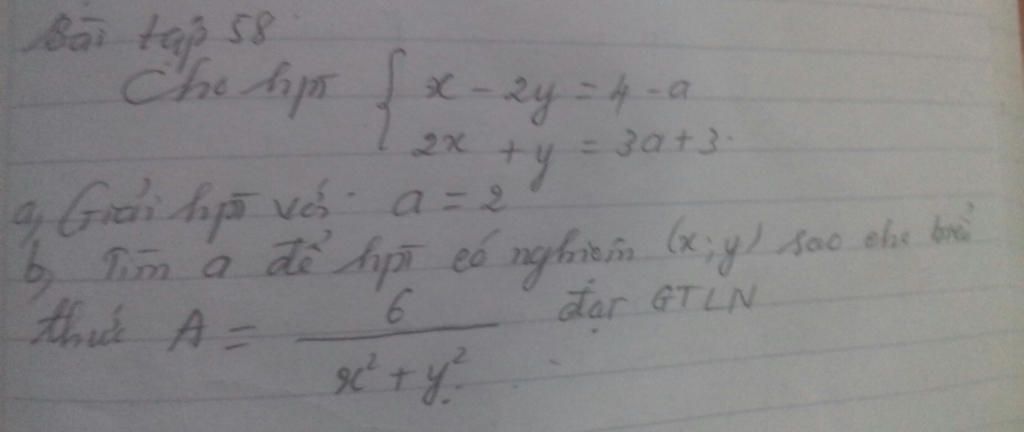 Bài tập 58
Cho hpt { x - 2y = 4 - a
2x + y = 3a + 3.
a, Giải hpt với a = 2
b, Tìm a để hpt có nghiệm (x; y) sao cho biểu
thức A = 6 / x² + y². đạt GTLN